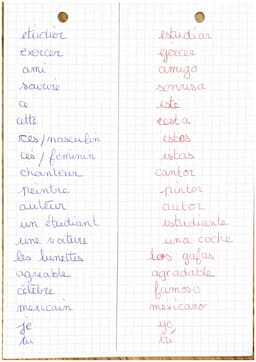 étudier estudiar
exercer ejercer
ami amigo
sourire sonrisa
ce este
cette esta
ces/masculin estos
ces/féminin estas
chanteur cantor
peintre pintor
auteur autor
un étudiant estudiante
une voiture una coche
les lunettes las gafas
agréable agradable
célèbre famoso
mexicain mexicano
je yo
tu tú